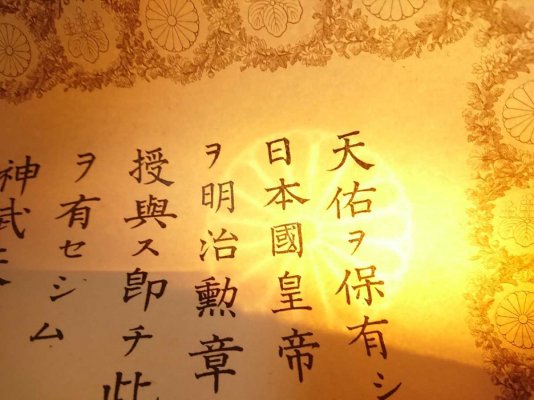 天佑ヲ保有シ
日本國皇帝
ヲ明治勳章
授與ス即チ此
ヲ有セシム
神武天